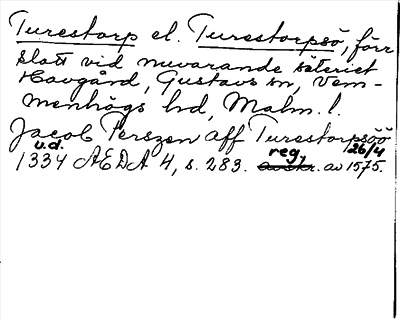 Turestorp el. Turestorpsö, förr
slott vid nuvarande säteriet
Havgård, Gustavs sn, Vem-
menhögs hd, Malm. l.
Jacob Perszen aff Turestorpsöö
u.d. reg. 26/4
1334 AEDA 4, s. 283. avskr. av 1575.